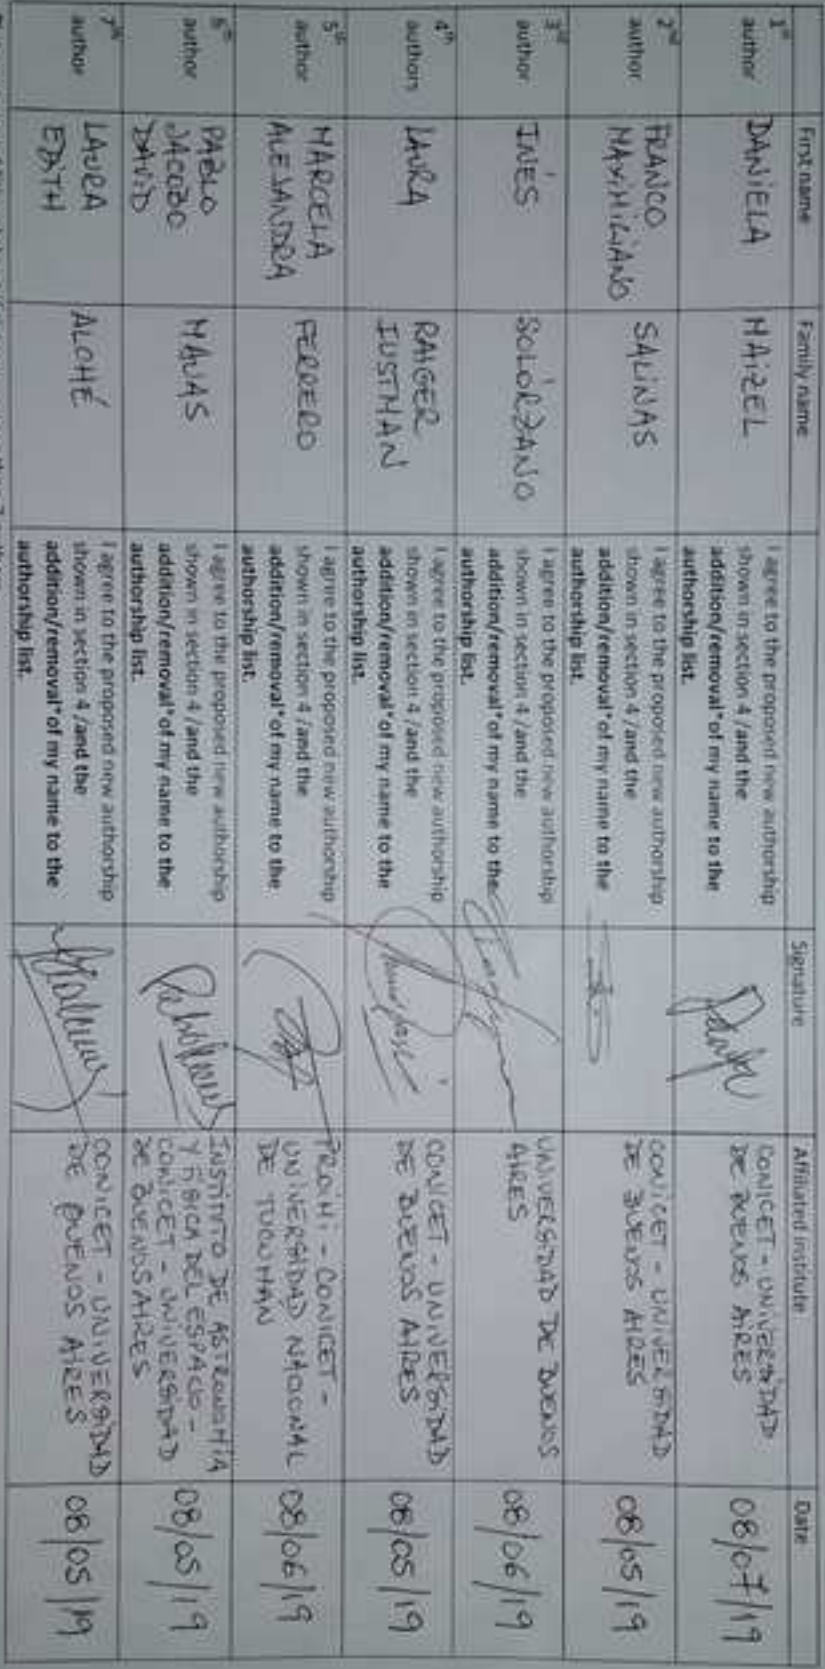 First name Family name Signature Affiliated institute Date
1st
author
DANIELA
MAIZEL
I agree to the proposed new authorship
shown in section 4 /and the
addition/removal*of my name to the
authorship list.
CONICET - UNIVERSIDAD
DE BUENOS AIRES
08/07/19
2nd
author
FRANCO
MAXIMILIANO
SALINAS
I agree to the proposed new authorship
shown in section 4 /and the
addition/removal*of my name to the
authorship list.
CONICET - UNIVERSIDAD
DE BUENOS AIRES
08/05/19
3rd
author
INÉS
SOLÓRZANO
I agree to the proposed new authorship
shown in section 4 /and the
addition/removal*of my name to the
authorship list.
UNIVERSIDAD DE BUENOS
AIRES
08/06/19
4th
authors
LAURA
RAIGER
IUSTMAN
I agree to the proposed new authorship
shown in section 4 /and the
addition/removal*of my name to the
authorship list.
CONICET - UNIVERSIDAD
DE BUENOS AIRES
08/05/19
5th
author
MARCELA
ALEJANDRA
FERRERO
I agree to the proposed new authorship
shown in section 4 /and the
addition/removal*of my name to the
authorship list.
PROIMI - CONICET -
UNIVERSIDAD NACIONAL
DE TUCUMAN
08/06/19
6th
author
PABLO
JACOBO
DAVID
MAUAS
I agree to the proposed new authorship
shown in section 4 /and the
addition/removal*of my name to the
authorship list.
INSTITUTO DE ASTRONOMÍA
Y FÍSICA DEL ESPACIO -
CONICET - UNIVERSIDAD
DE BUENOS AIRES
08/05/19
7th
author
LAURA
EDITH
ALCHÉ
I agree to the proposed new authorship
shown in section 4 /and the
addition/removal*of my name to the
authorship list.
CONICET - UNIVERSIDAD
DE BUENOS AIRES
08/05/19